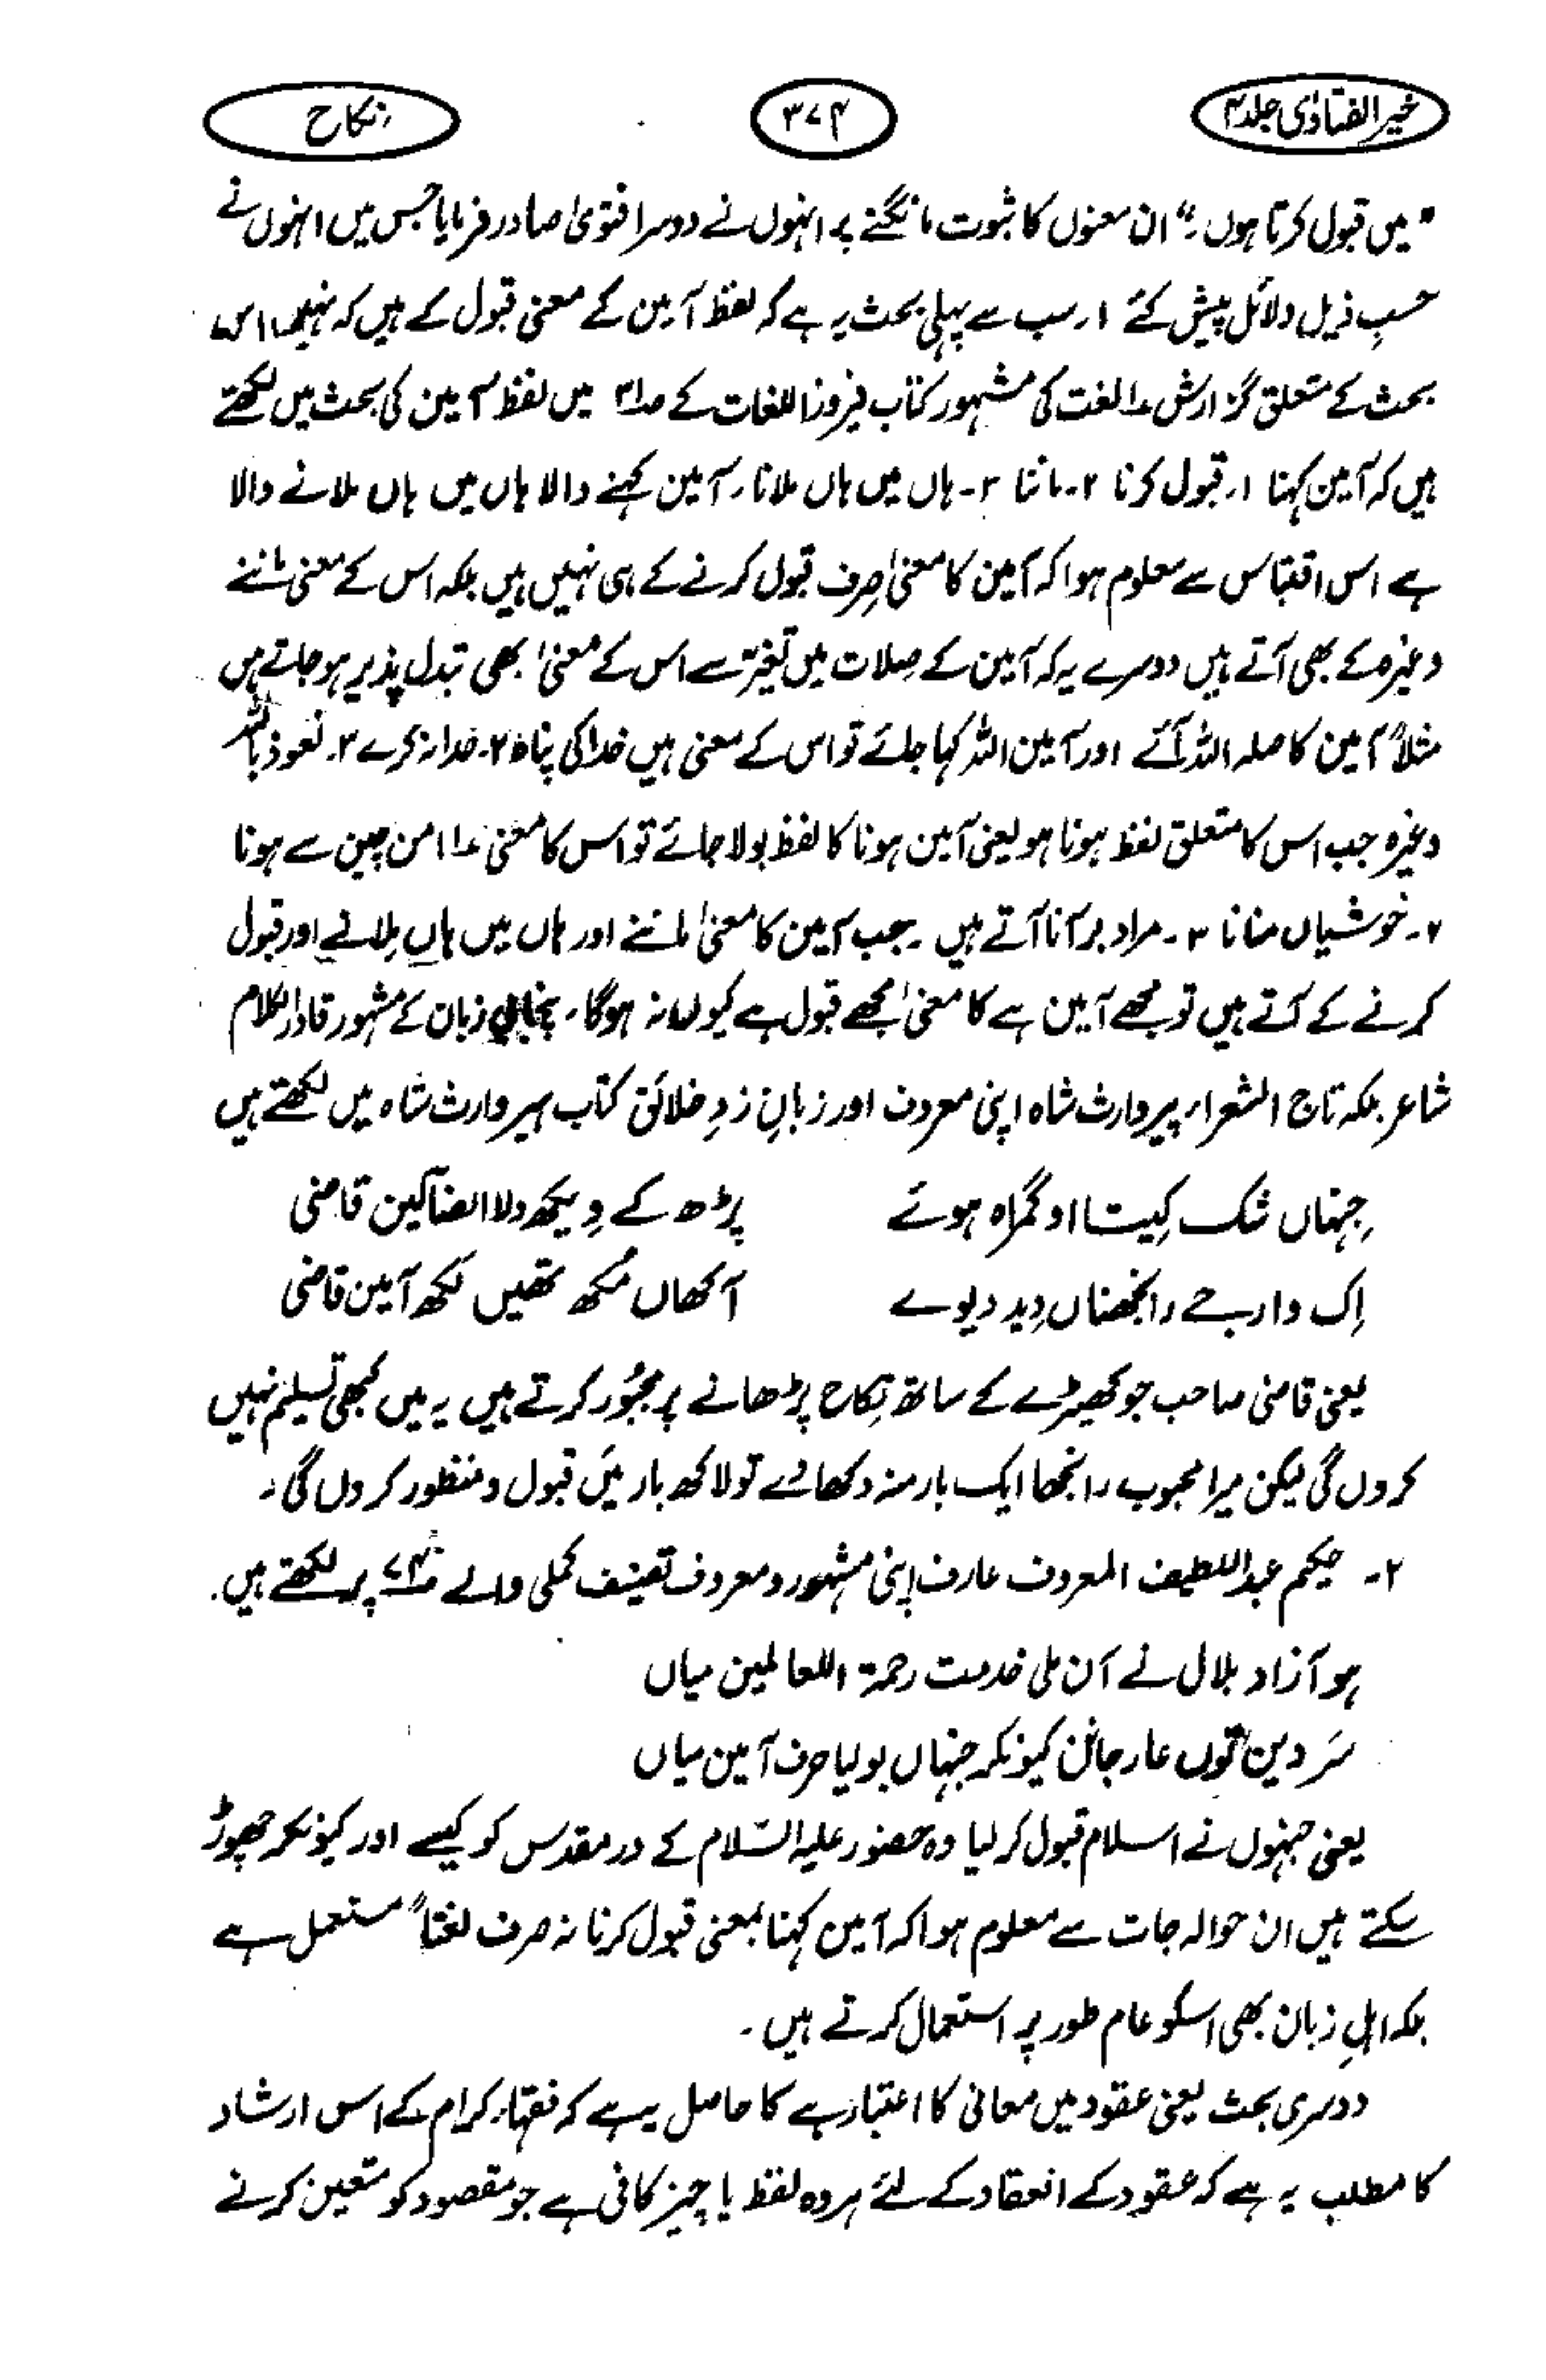 خیر الفتاوٰی جلد ۴
۳۷۴
نکاح
"میں قبول کرتا ہوں۔" ان معنوں کا ثبوت مانگنے پر انہوں نے دوسرا فتویٰ صادر فرمایا جس میں انہوں نے
حسبِ ذیل دلائل پیش کئے ۱۔ سب سے پہلی بحث یہ ہے کہ لفظ آمین کے معنی قبول کے ہیں کہ نہیں۔ اس
بحث کے متعلق گزارش ہے لغت کی مشہور کتاب فیروز اللغات کے میں لفظ آمین کی بحث میں لکھتے
ہیں کہ آمین کہنا ۱۔ قبول کرنا ۲۔ ماننا ۳۔ ہاں میں ہاں ملانا۔ آمین کہنے والا ہاں میں ہاں ملانے والا
ہے اس اقتباس سے معلوم ہوا کہ آمین کا معنیٰ صِرف قبول کرنے کے ہی نہیں ہیں بلکہ اس کے معنی ماننے
وغیرہ کے بھی آتے ہیں دوسرے یہ کہ آمین کے صِلات میں تغیّر سے اس کے معنیٰ بھی تبدل پذیر ہو جاتے ہیں
مثلاً آمین کا صلہ اللہ آئے اور آمین اللہ کہا جائے تو اس کے معنی ہیں خدا کی پناہ ۲۔ خدا نہ کرے ۳۔ نعوذ باللہ
وغیرہ جب اس کا متعلق لفظ ہونا ہو یعنی آمین ہونا کا لفظ بولا جائے تو اس کا معنی ۱۔ امن چین سے ہونا
۲۔ خوشیاں منانا ۳۔ مراد بر آنا آتے ہیں۔ جب آمین کا معنیٰ ماننے اور ہاں میں ہاں ملانے اور قبول
کرنے کے آتے ہیں تو مجھے آمین ہے کا معنیٰ مجھے قبول ہے کیوں نہ ہوگا۔ پنجابی زبان کے مشہور قادر الکلام
شاعر بلکہ تاج الشعراء پیر وارث شاہ اپنی معروف اور زبانِ زدِ خلائق کتاب ہیر وارث شاہ میں لکھتے ہیں
جِنہاں شک کِیتا او گمراہ ہوئے پڑھ کے وِیکھ ولا الضآلین قاضی
اِک وار جے رانجھناں دِید دیوے آکھاں مُکھ تھیں لکھ آمین قاضی
یعنی قاضی صاحب جو کھیڑے کے ساتھ نِکاح پڑھانے پر مجبُور کرتے ہیں یہ میں کبھی تسلیم نہیں
کروں گی لیکن میرا محبوب رانجھا ایک بار منہ دکھائے تو لاکھ بار میَں قبول و منظور کروں گی۔
۲۔ حکیم عبداللطیف المعروف عارف اپنی مشہور و معروف تصنیف کملی والے پر لکھتے ہیں۔
ہو آزاد بلال نے آن ملی خدمت رحمۃ اللعالمین میاں
سَر دین توں عار جائن کیونکر جنہاں بولیا حرف آمین میاں
یعنی جنہوں نے اسلام قبول کر لیا وہ حضور علیہ السّلام کے در مقدس کو کیسے اور کیونکر چھوڑ
سکتے ہیں ان حوالہ جات سے معلوم ہوا کہ آمین کہنا بمعنی قبول کرنا نہ صرف لغتاً مستعمل ہے
بلکہ اہلِ زبان بھی اسکو عام طور پر استعمال کرتے ہیں۔
دوسری بحث یعنی عقود میں معانی کا اعتبار ہے کا حاصل یہ ہے کہ فقہاء کرام کے اس ارشاد
کا مطلب یہ ہے کہ عقود کے انعقاد کے لئے ہر وہ لفظ یا چیز کافی ہے جو مقصود کو متعین کرنے